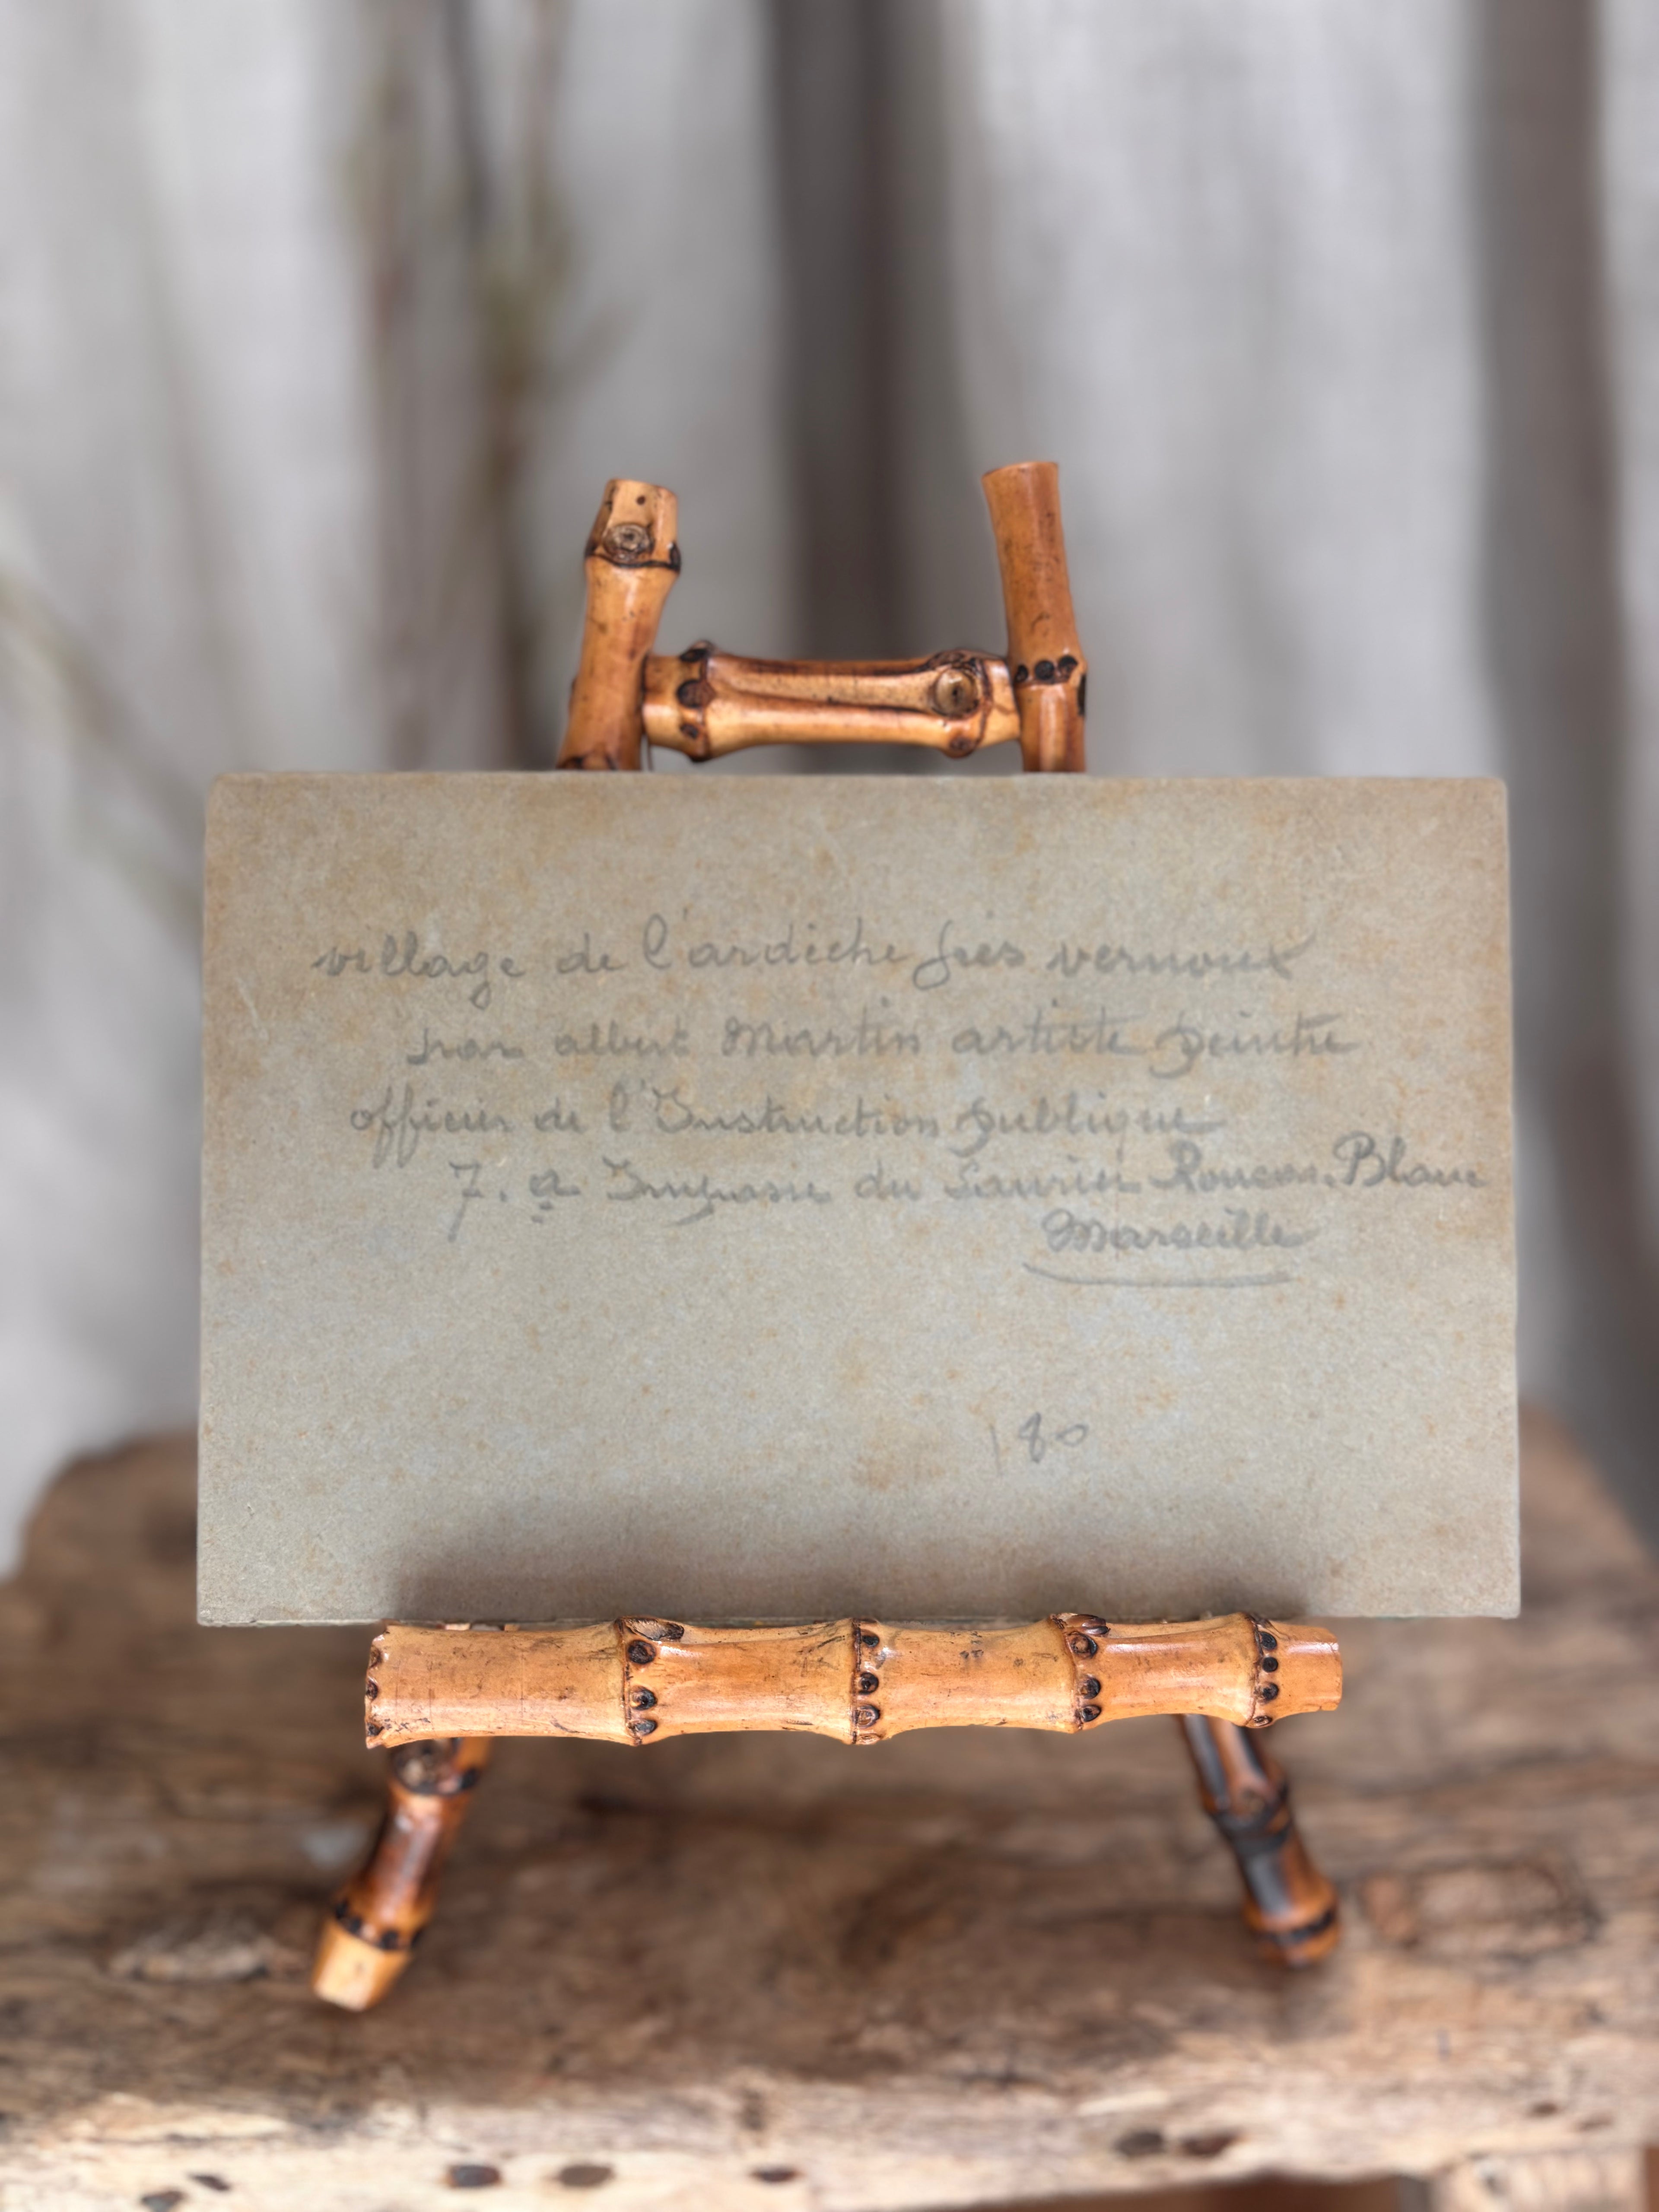 village de l'ardèche près vernoux
par albert Martin artiste peintre
officier de l'Instruction publique
7. a Impasse du Laurier Roucas-Blanc
Marseille
180